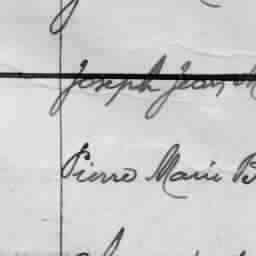 Joseph Jean
Pierre Marie B